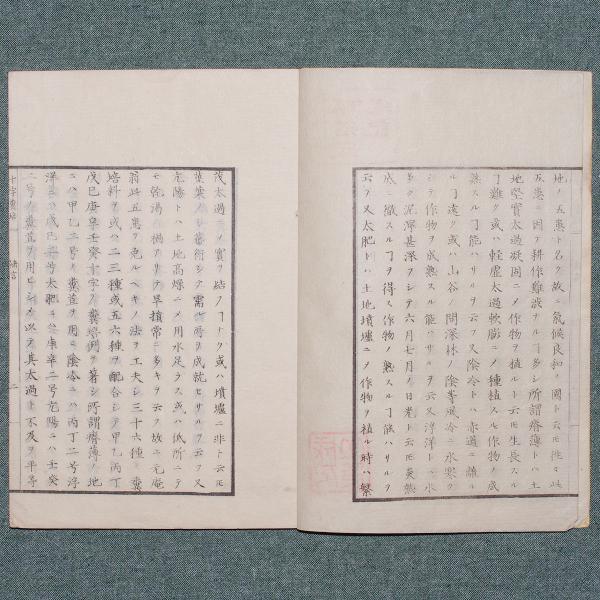 地ノ五悪ト名ク故ニ氣候良和ノ國ト云𪜈往々此
五悪ニ因テ耕作難波ナル𬼂多シ所謂瘠薄トハ
地堅實太過凝固ニメ作物ヲ植ルト云𪜈生長スル
𬼂難ク或ハ軽虚太過軟膨ニメ種植スル作物ノ成
熟スル𬼂能ハサルヲ云フ又陰冷トハ赤道ニ離ル
ル𬼂遠ク或ハ山谷ノ間深林ノ陰等風冷ニ水寒ク
シテ作物ヲ成熟スル能ハサルヲ云又浮洋トハ水
多ク泥濘甚深フシテ六月七月ノ日ニ
成ニ熾スル𬼂ヲ得ス作物ノ熟スル𬼂能ハサルヲ
云フ又太肥トハ土地墳壚ニメ作物ヲ植ル時ハ繁
茂太過ニメ實ヲ結ノ𬼂ナク或ハ墳壚ニ非ト云𪜈
葉ノミ蕃衍シテ需用ヲ成就セサルヲ云フ又
亢陽トハ土地高燥ニメ用水足ラス或ハ低所ニテ
モ乾渇ノ禍アリテ旱損常ニ多キヲ云フ故ニ元庵
翁此五悪ヲ免ルヘキノ法ヲ工夫シ三十六種ノ糞
培料ヲ或ハ二三種或ハ五六種ヲ配合シテ甲乙丙丁
戊巳庚辛壬癸十字ノ糞培例ヲ著シ所謂瘠薄ノ地
ニハ甲乙二号ノ糞苴ヲ用ヒ陰冷ニハ丙丁二号浮
洋ニハ戊巳二号太肥ニハ庚辛二号亢陽ニハ壬癸
二号ノ糞苴ヲ用ヒシメ以テ其太過ト不及ヲ平等